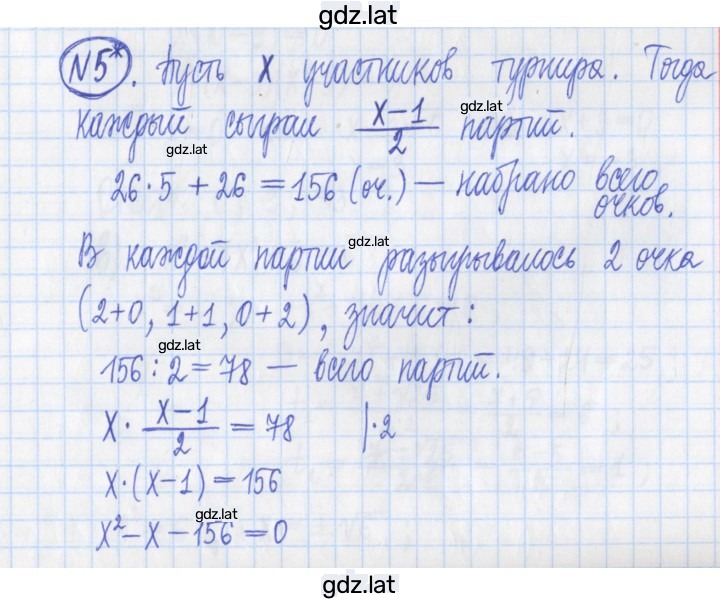 gdz.lat
N5*. Пусть X участников турнира. Тогда
каждый сыграл (X-1)/2 партий.
gdz.lat
26·5 + 26 = 156 (оч.) — набрано всего
очков.
gdz.lat
В каждой партии разыгрывалось 2 очка
(2+0, 1+1, 0+2), значит:
156 : 2 = 78 — всего партий.
X · (X-1)/2 = 78 |·2
X·(X-1) = 156
gdz.lat
X² - X - 156 = 0
gdz.lat